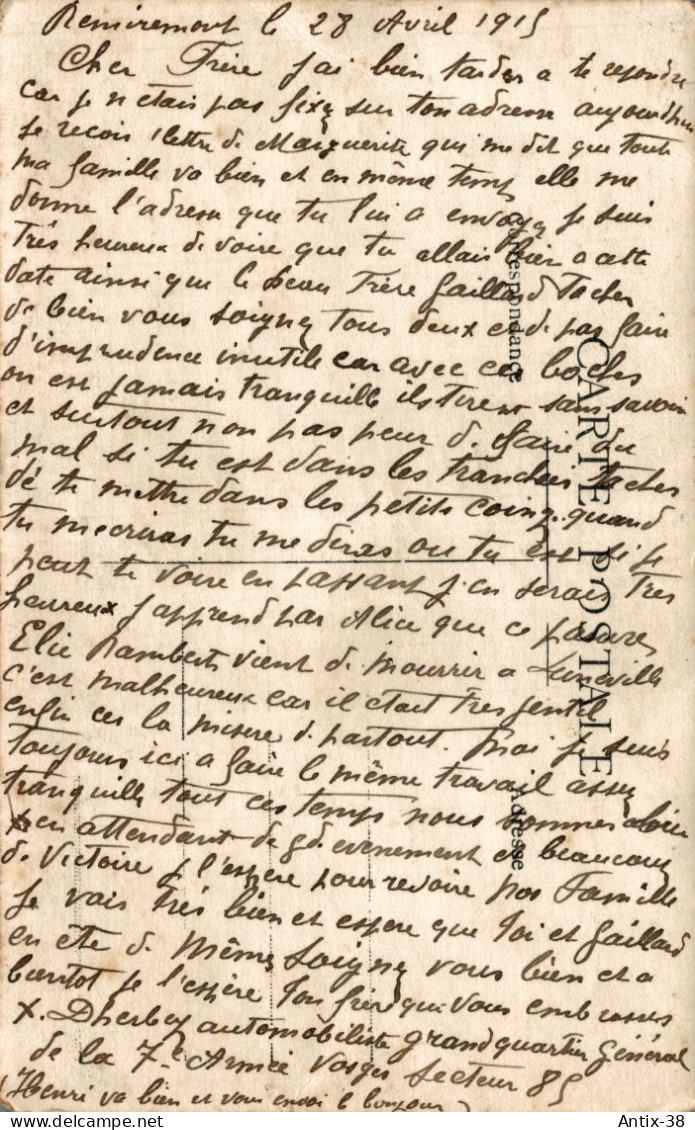 Remiremont le 28 Avril 1915
Cher Frère j'ai bien tarder a te repondre
car je n'etais pas fixé sur ton adresse aujourd'hui
je recois 1 lettre de Marguerite qui me dit que toute
ma famille va bien et en même temps elle me
donne l'adresse que tu lui a envoyé je suis
très heureux de voire que tu allais bien a cette
date ainsi que le beau Frère Gaillard Tacher
de bien vous soigner tous deux et de pas faire
d'imprudence inutile car avec ces boches
on est jamais tranquille ils tirent sans savoir
et surtout non pas peur de faire du
mal si tu est dans les tranchées taches
de te mettre dans les petits coins quand
tu mecriras tu me diras ou tu est si je
peut te voire en passant j'en serais tres
heureux j'apprend par Alice que ce pauvre
Elie Rambert vient de mourrir a Luneville
c'est malheureux car il etait tres gentil
enfin ces la misere de partout. moi je suis
toujours ici a faire le même travail assez
tranquille tout ces temps nous sommes bien
en attendant de gd evenement et beaucoup
de victoire je l'espere pour revoire nos Famille
je vais très bien et espere que toi et Gaillard
en ête de même soigner vous bien et a
bientot je l'espère ton frère qui vous embrasses
X. Dherbey automobiliste grand quartier général
de la 7e Armée Vosges Secteur 85
(Henri va bien et vous envoi le bonjour)
CARTE POSTALE
Correspondance
Adresse
Antix-38